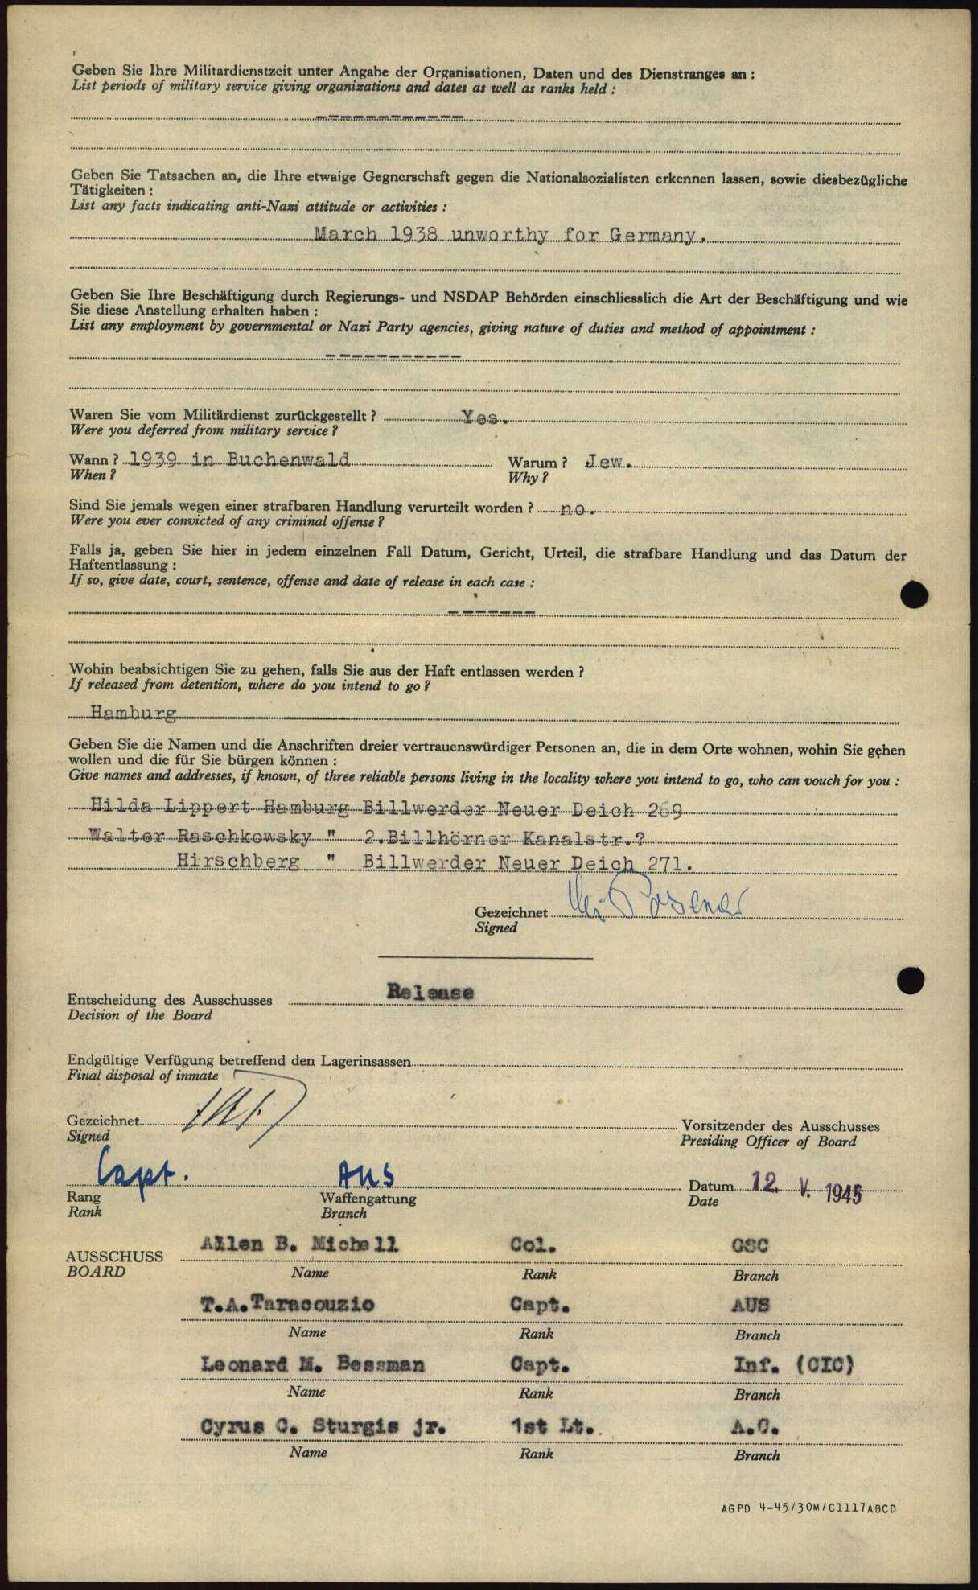 Geben Sie Ihre Militärdienstzeit unter Angabe der Organisationen, Daten und des Dienstranges an :
List periods of military service giving organizations and dates as well as ranks held :
-----------
Geben Sie Tatsachen an, die Ihre etwaige Gegnerschaft gegen die Nationalsozialisten erkennen lassen, sowie diesbezügliche
Tätigkeiten :
List any facts indicating anti-Nazi attitude or activities :
March 1938 unworthy for Germany.
Geben Sie Ihre Beschäftigung durch Regierungs- und NSDAP Behörden einschliesslich die Art der Beschäftigung und wie
Sie diese Anstellung erhalten haben :
List any employment by governmental or Nazi Party agencies, giving nature of duties and method of appointment :
-----------
Waren Sie vom Militärdienst zurückgestellt ? Yes.
Were you deferred from military service ?
Wann ? 1939 in Buchenwald Warum ? Jew.
When ? Why ?
Sind Sie jemals wegen einer strafbaren Handlung verurteilt worden ? no.
Were you ever convicted of any criminal offense ?
Falls ja, geben Sie hier in jedem einzelnen Fall Datum, Gericht, Urteil, die strafbare Handlung und das Datum der
Haftentlassung :
If so, give date, court, sentence, offense and date of release in each case :
-------
Wohin beabsichtigen Sie zu gehen, falls Sie aus der Haft entlassen werden ?
If released from detention, where do you intend to go ?
Hamburg
Geben Sie die Namen und die Anschriften dreier vertrauenswürdiger Personen an, die in dem Orte wohnen, wohin Sie gehen
wollen und die für Sie bürgen können :
Give names and addresses, if known, of three reliable persons living in the locality where you intend to go, who can vouch for you :
Hilda Lippert Hamburg Billwerder Neuer Deich 269
Walter Raschkowsky " 2.Billhörner Kanalstr.?
Hirschberg " Billwerder Neuer Deich 271.
Gezeichnet
Signed
Entscheidung des Ausschusses Release
Decision of the Board
Endgültige Verfügung betreffend den Lagerinsassen
Final disposal of inmate
Gezeichnet Vorsitzender des Ausschusses
Signed Presiding Officer of Board
Capt. AUS
Rang Waffengattung Datum 12. V. 1945
Rank Branch Date
AUSSCHUSS Allen B. Michell Col. GSC
BOARD Name Rank Branch
T.A.Taracouzio Capt. AUS
Name Rank Branch
Leonard M. Bessman Capt. Inf. (CIC)
Name Rank Branch
Cyrus C. Sturgis jr. 1st Lt. A.C.
Name Rank Branch
AGPD 4-45/30M/C1117ABCD